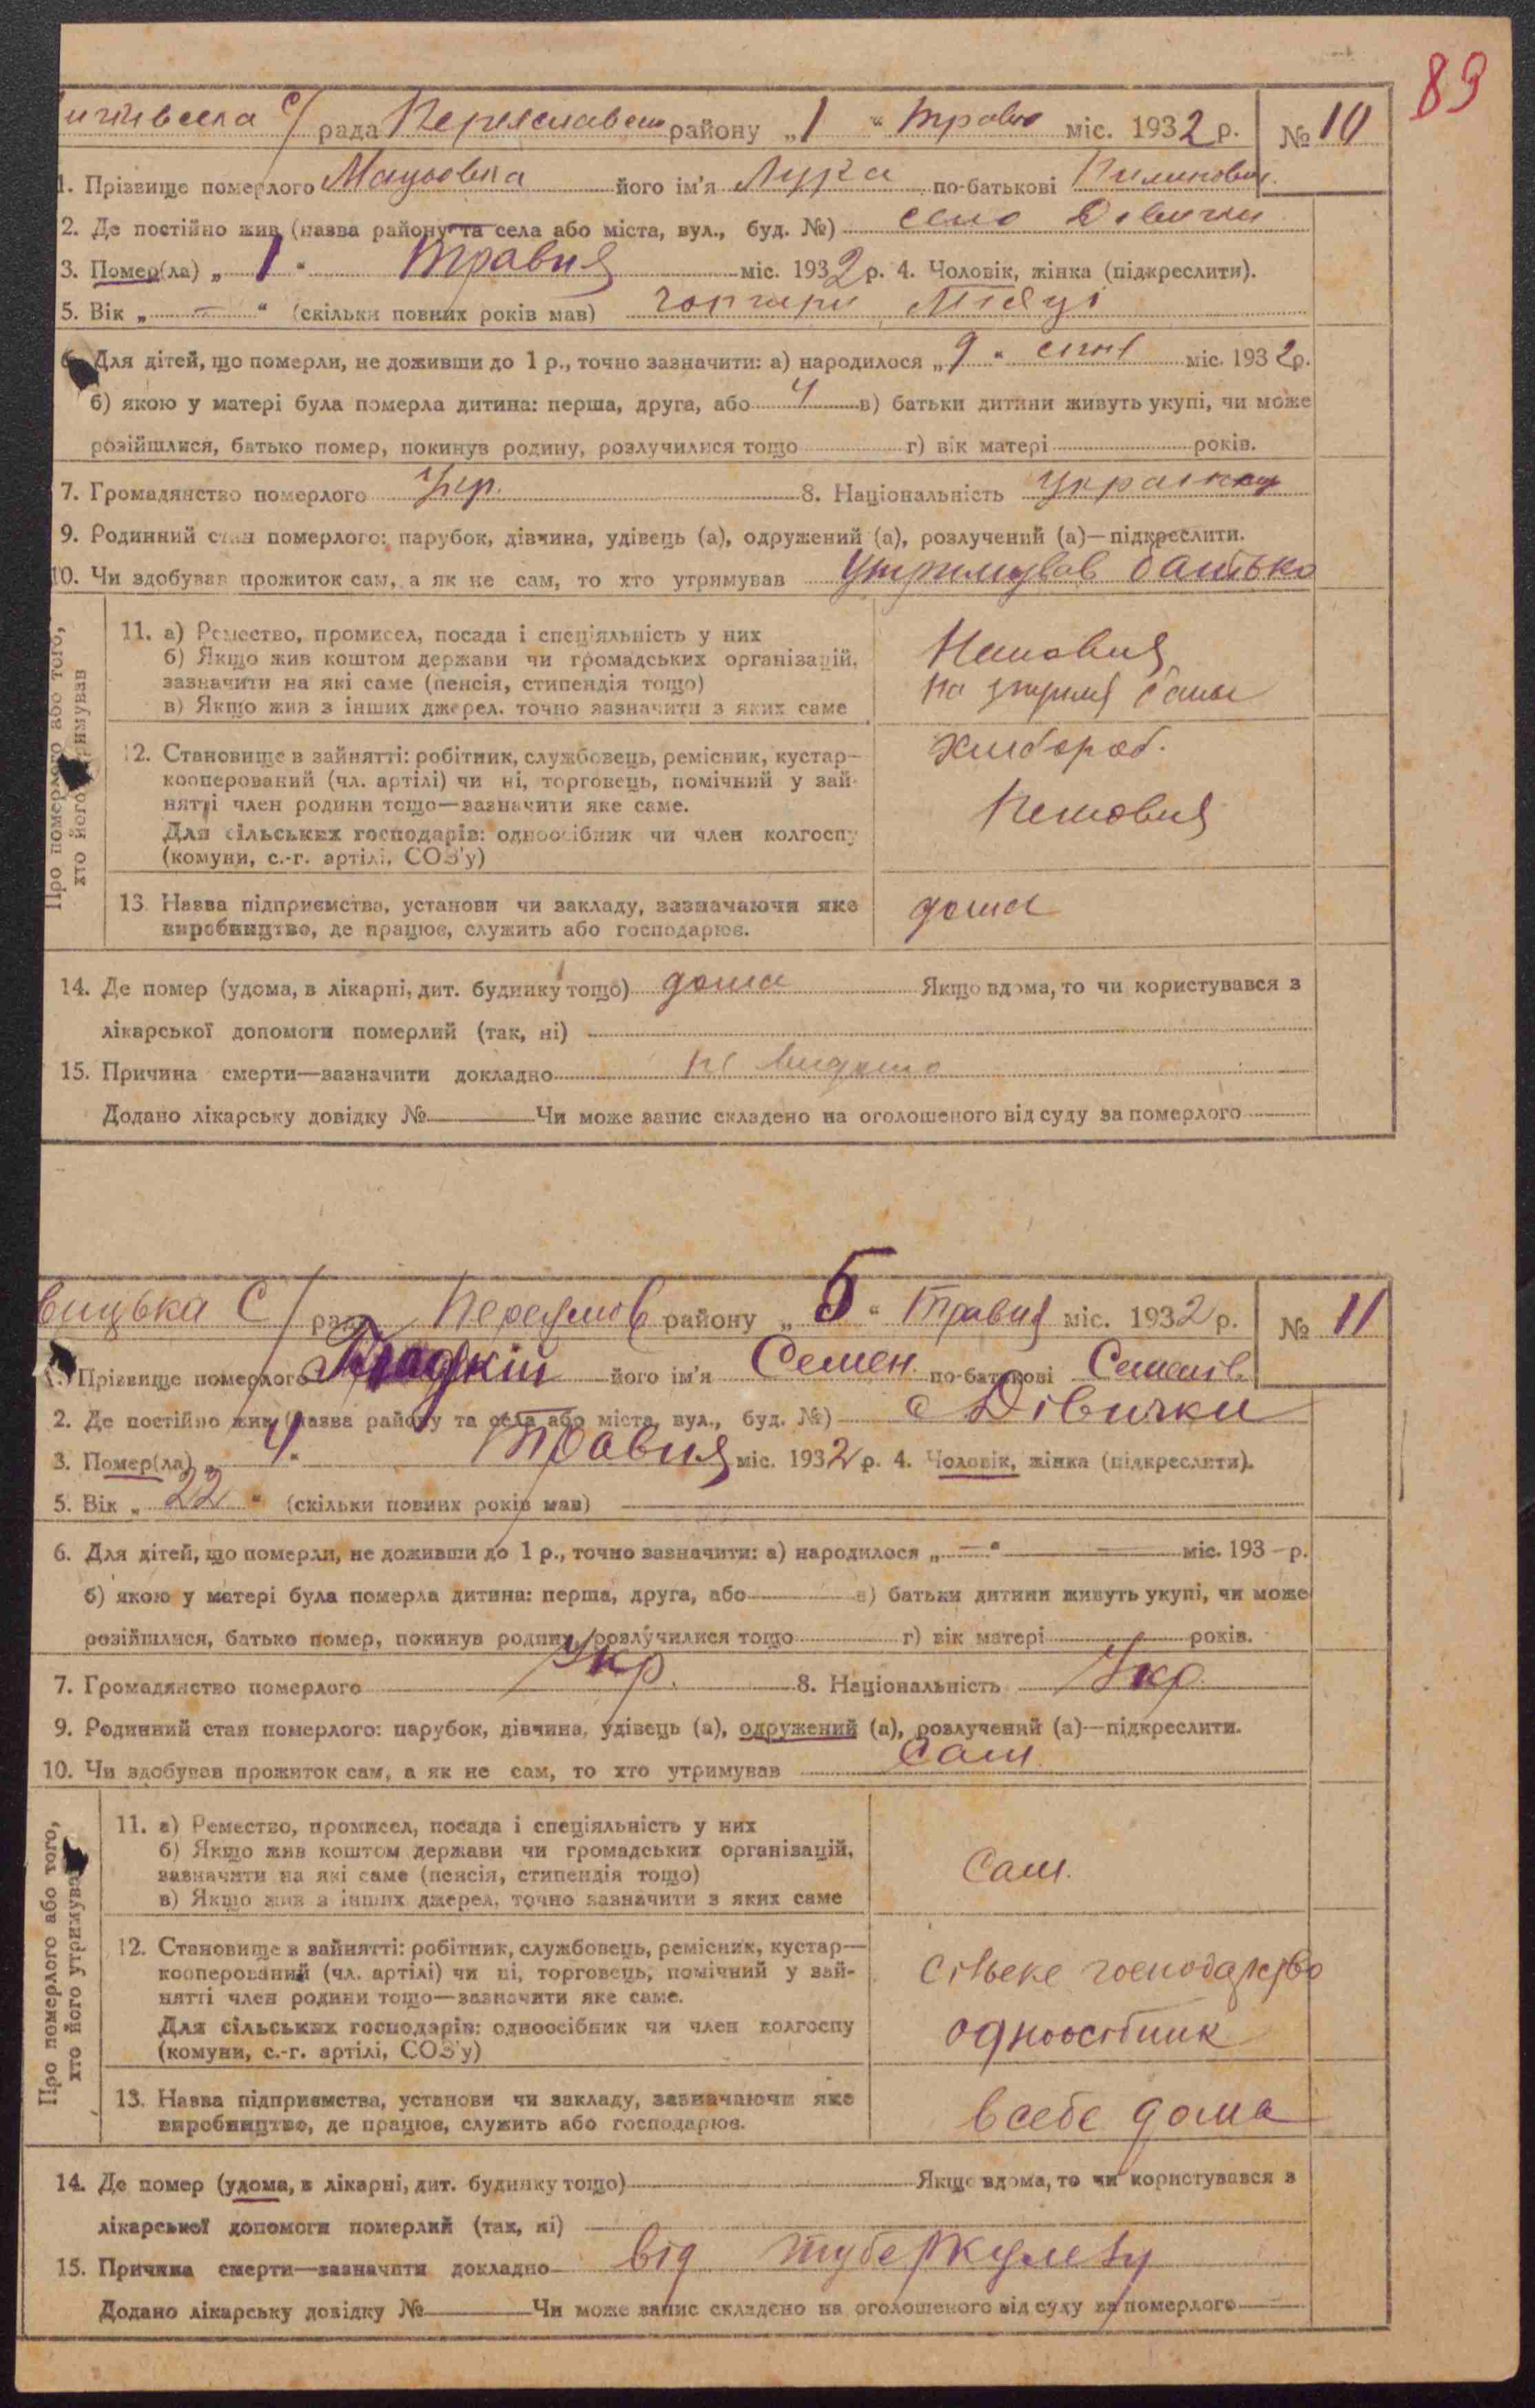 89
с/ рада Переяславськ району „1" травня міс. 1932 р. № 10
1. Прізвище померлого його ім'я Лука по-батькові Пилипович
2. Де постійно жив (назва району та села або міста, вул., буд. №) село Дівички
3. Помер(ла) „1" травня міс. 1932 р. 4. Чоловік, жінка (підкреслити).
5. Вік „—" (скільки повних років мав) чотири місяці
6. Для дітей, що померли, не доживши до 1 р., точно зазначити: а) народилося „9" січня міс. 1932 р.
б) якою у матері була померла дитина: перша, друга, або 4 в) батьки дитини живуть укупі, чи може
розійшлися, батько помер, покинув родину, розлучилися тощо г) вік матері років.
7. Громадянство померлого Укр. 8. Національність
9. Родинний стан померлого: парубок, дівчина, удівець (а), одружений (а), розлучений (а)—підкреслити.
10. Чи здобував прожиток сам, а як не сам, то хто утримував утримував батько
Про померлого або того, хто його утримував
11. а) Ремество, промисел, посада і спеціяльність у них
б) Якщо жив коштом держави чи громадських організацій,
зазначити на які саме (пенсія, стипендія тощо)
в) Якщо жив з інших джерел, точно зазначити з яких саме
12. Становище в зайнятті: робітник, службовець, ремісник, кустар—
кооперований (чл. артілі) чи ні, торговець, помічний у зай-
нятті член родини тощо—зазначити яке саме.
Для сільських господарів: одноосібник чи член колгоспу
(комуни, с.-г. артілі, СОЗ'у)
хлібороб.
13. Назва підприємства, установи чи закладу, зазначаючи яке
виробництво, де працює, служить або господарює.
дома
14. Де помер (удома, в лікарні, дит. будинку тощо) дома Якщо вдома, то чи користувався з
лікарської допомоги померлий (так, ні)
15. Причина смерти—зазначити докладно не видомо
Додано лікарську довідку № Чи може запис складено на оголошеного від суду за померлого
вицька С/ рада Переяслов району „5" травня міс. 1932 р. № 11
1. Прізвище померлого Гладкій його ім'я Семен по-батькові Семенів.
2. Де постійно жив (назва району та села або міста, вул., буд. №) с Дівички
3. Помер(ла) „4" травня міс. 1932 р. 4. Чоловік, жінка (підкреслити).
5. Вік „22" (скільки повних років мав)
6. Для дітей, що померли, не доживши до 1 р., точно зазначити: а) народилося „—" — міс. 193— р.
б) якою у матері була померла дитина: перша, друга, або в) батьки дитини живуть укупі, чи може
розійшлися, батько помер, покинув родину, розлучилися тощо г) вік матері років.
7. Громадянство померлого Укр. 8. Національність Укр.
9. Родинний стан померлого: парубок, дівчина, удівець (а), одружений (а), розлучений (а)—підкреслити.
10. Чи здобував прожиток сам, а як не сам, то хто утримував Сам.
Про померлого або того, хто його утримував
11. а) Ремество, промисел, посада і спеціяльність у них
б) Якщо жив коштом держави чи громадських організацій,
зазначити на які саме (пенсія, стипендія тощо)
в) Якщо жив з інших джерел, точно зазначити з яких саме
Сам.
12. Становище в зайнятті: робітник, службовець, ремісник, кустар—
кооперований (чл. артілі) чи ні, торговець, помічний у зай-
нятті член родини тощо—зазначити яке саме.
Для сільських господарів: одноосібник чи член колгоспу
(комуни, с.-г. артілі, СОЗ'у)
сільське господарство
одноосібник
13. Назва підприємства, установи чи закладу, зазначаючи яке
виробництво, де працює, служить або господарює.
в себе дома
14. Де помер (удома, в лікарні, дит. будинку тощо) Якщо вдома, то чи користувався з
лікарської допомоги померлий (так, ні)
15. Причина смерти—зазначити докладно від туберкулезу
Додано лікарську довідку № Чи може запис складено на оголошеного від суду за померлого